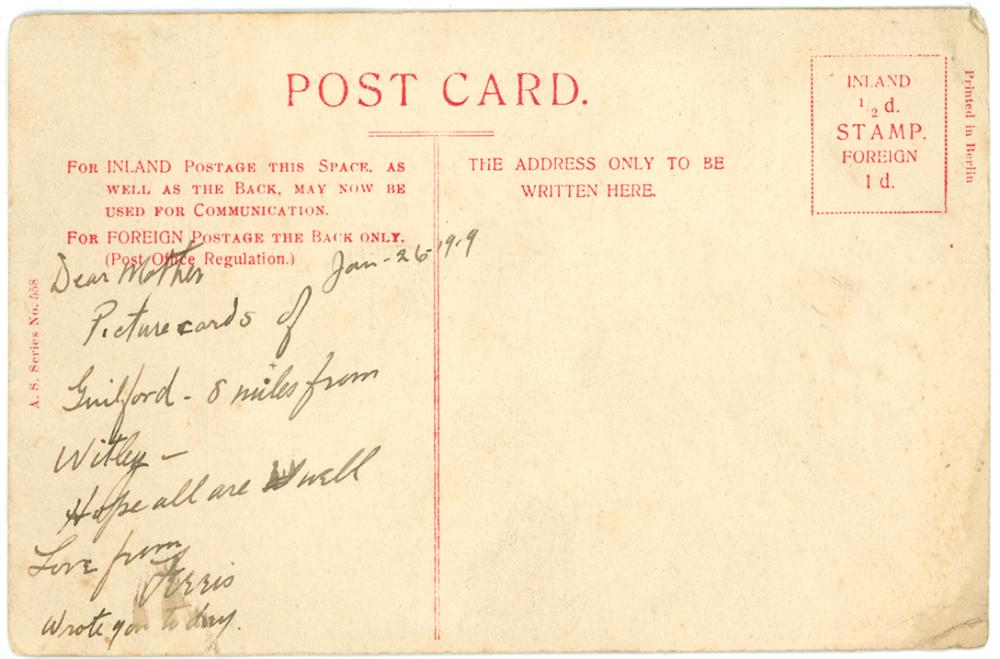 POST CARD.
FOR INLAND POSTAGE THIS SPACE, AS
WELL AS THE BACK, MAY NOW BE
USED FOR COMMUNICATION.
FOR FOREIGN POSTAGE THE BACK ONLY.
(Post Office Regulation.)
THE ADDRESS ONLY TO BE
WRITTEN HERE.
INLAND
1/2 d.
STAMP.
FOREIGN
1 d.
Printed in Berlin
A. S. Series No. 558
Jan-26-1919
Dear Mother
Picture cards of
Guilford - 8 miles from
Witley -
Hope all are well
Love from
Ferris
Wrote you to day.